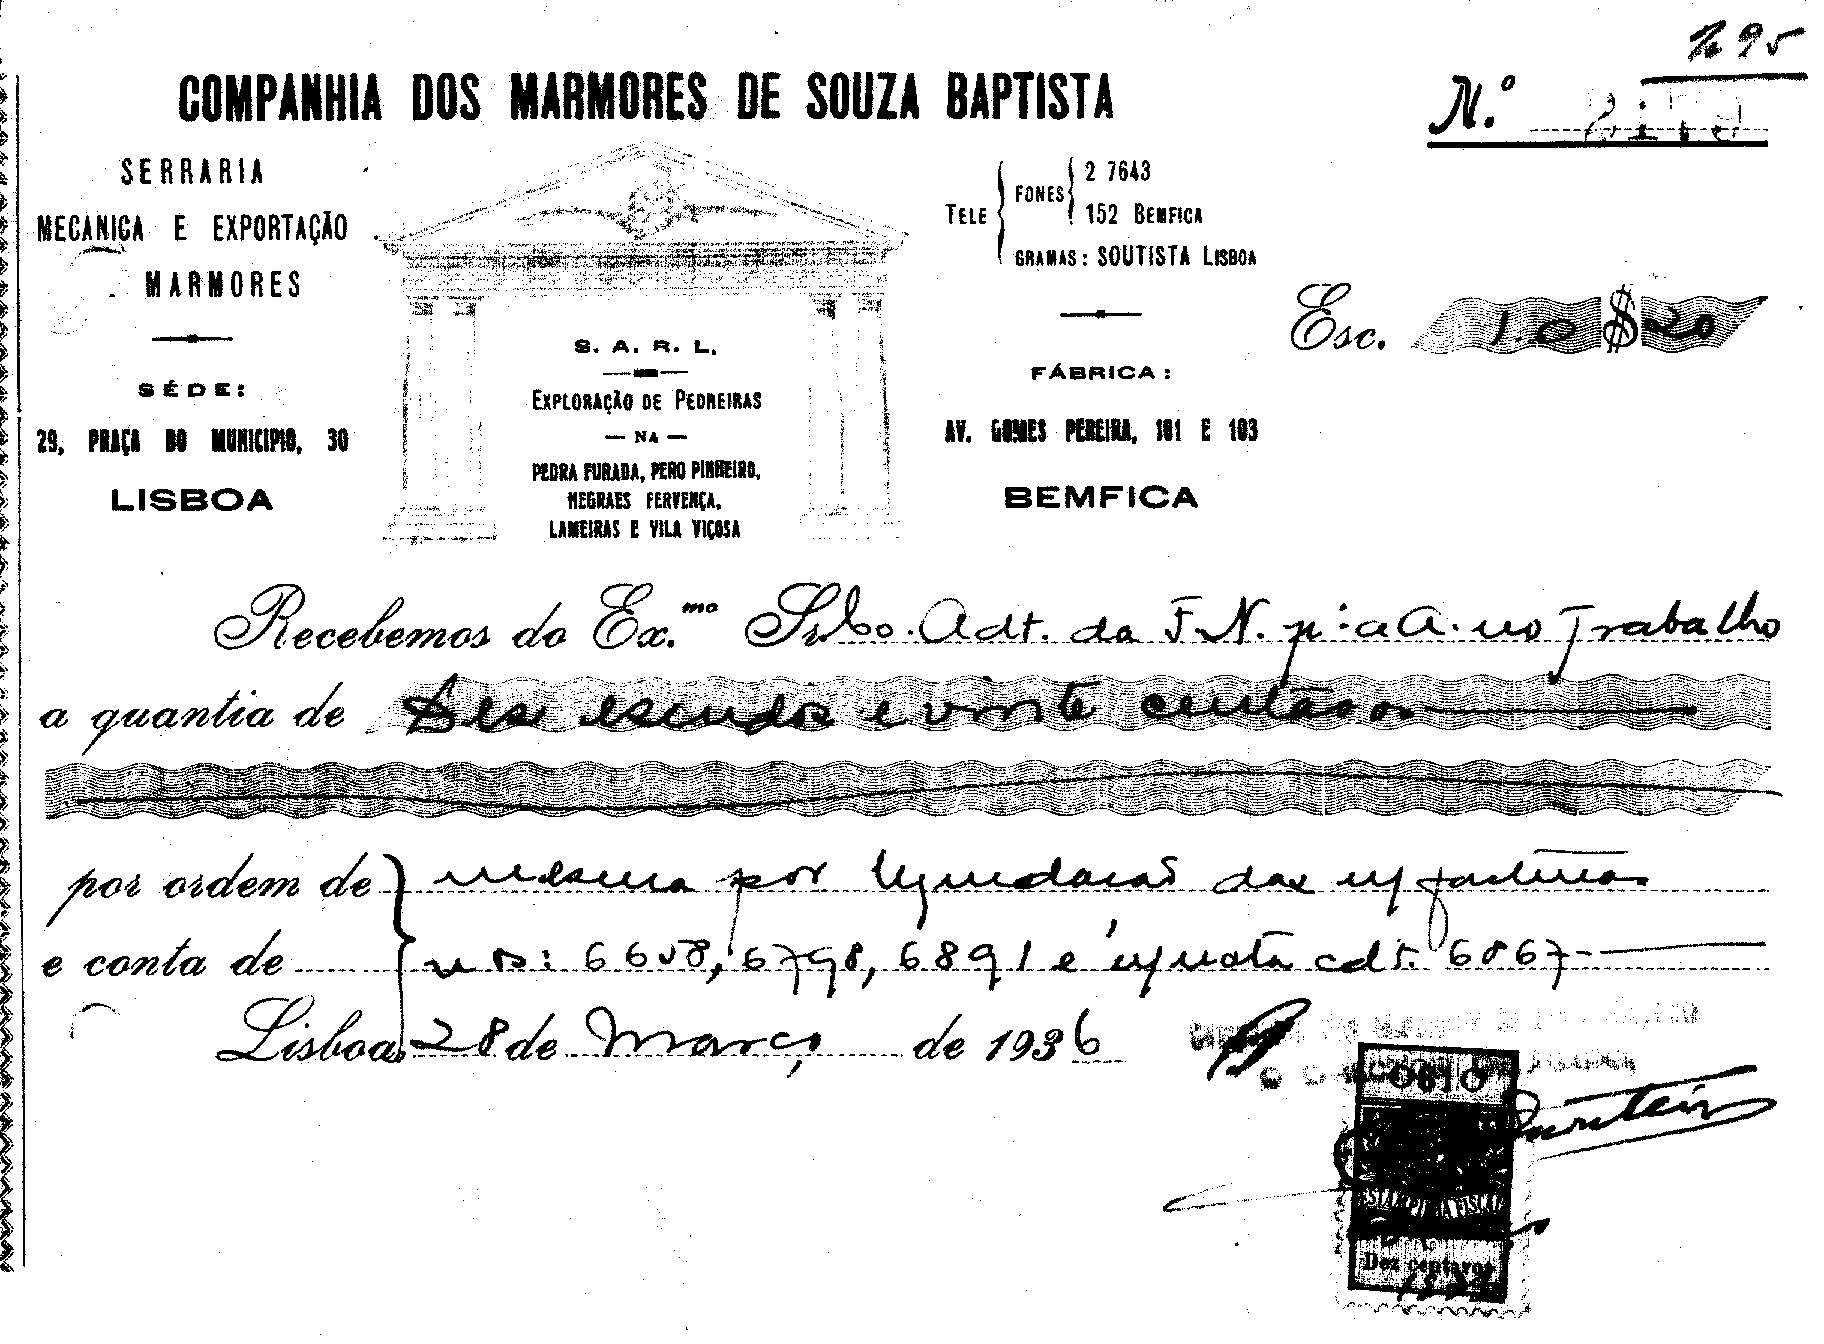 295
COMPANHIA DOS MARMORES DE SOUZA BAPTISTA
N.º
SERRARIA
MECANICA E EXPORTAÇÃO
MARMORES
SÉDE:
29, PRAÇA DO MUNICIPIO, 30
LISBOA
S. A. R. L.
EXPLORAÇÃO DE PEDREIRAS
— NA —
PEDRA FURADA, PERO PINHEIRO,
NEGRAES FERVENÇA,
LAMEIRAS E VILA VIÇOSA
TELE FONES 2 7643
152 BEMFICA
GRAMAS: SOUTISTA LISBOA
FÁBRICA:
AV. GOMES PEREIRA, 101 E 103
BEMFICA
Esc. 10$20
Recebemos do Ex.mo Sr. Co. Adt. da F.N. p: a A. no Trabalho
a quantia de Des escudos e vinte centavos
por ordem de mesma por liquidação das n/ facturas
e conta de nos: 6658, 6798, 6891 e n/ nota cdt. 6867
Lisboa, 28 de Março de 1936
ESTAMPILHA FISCAL
Dez centavos